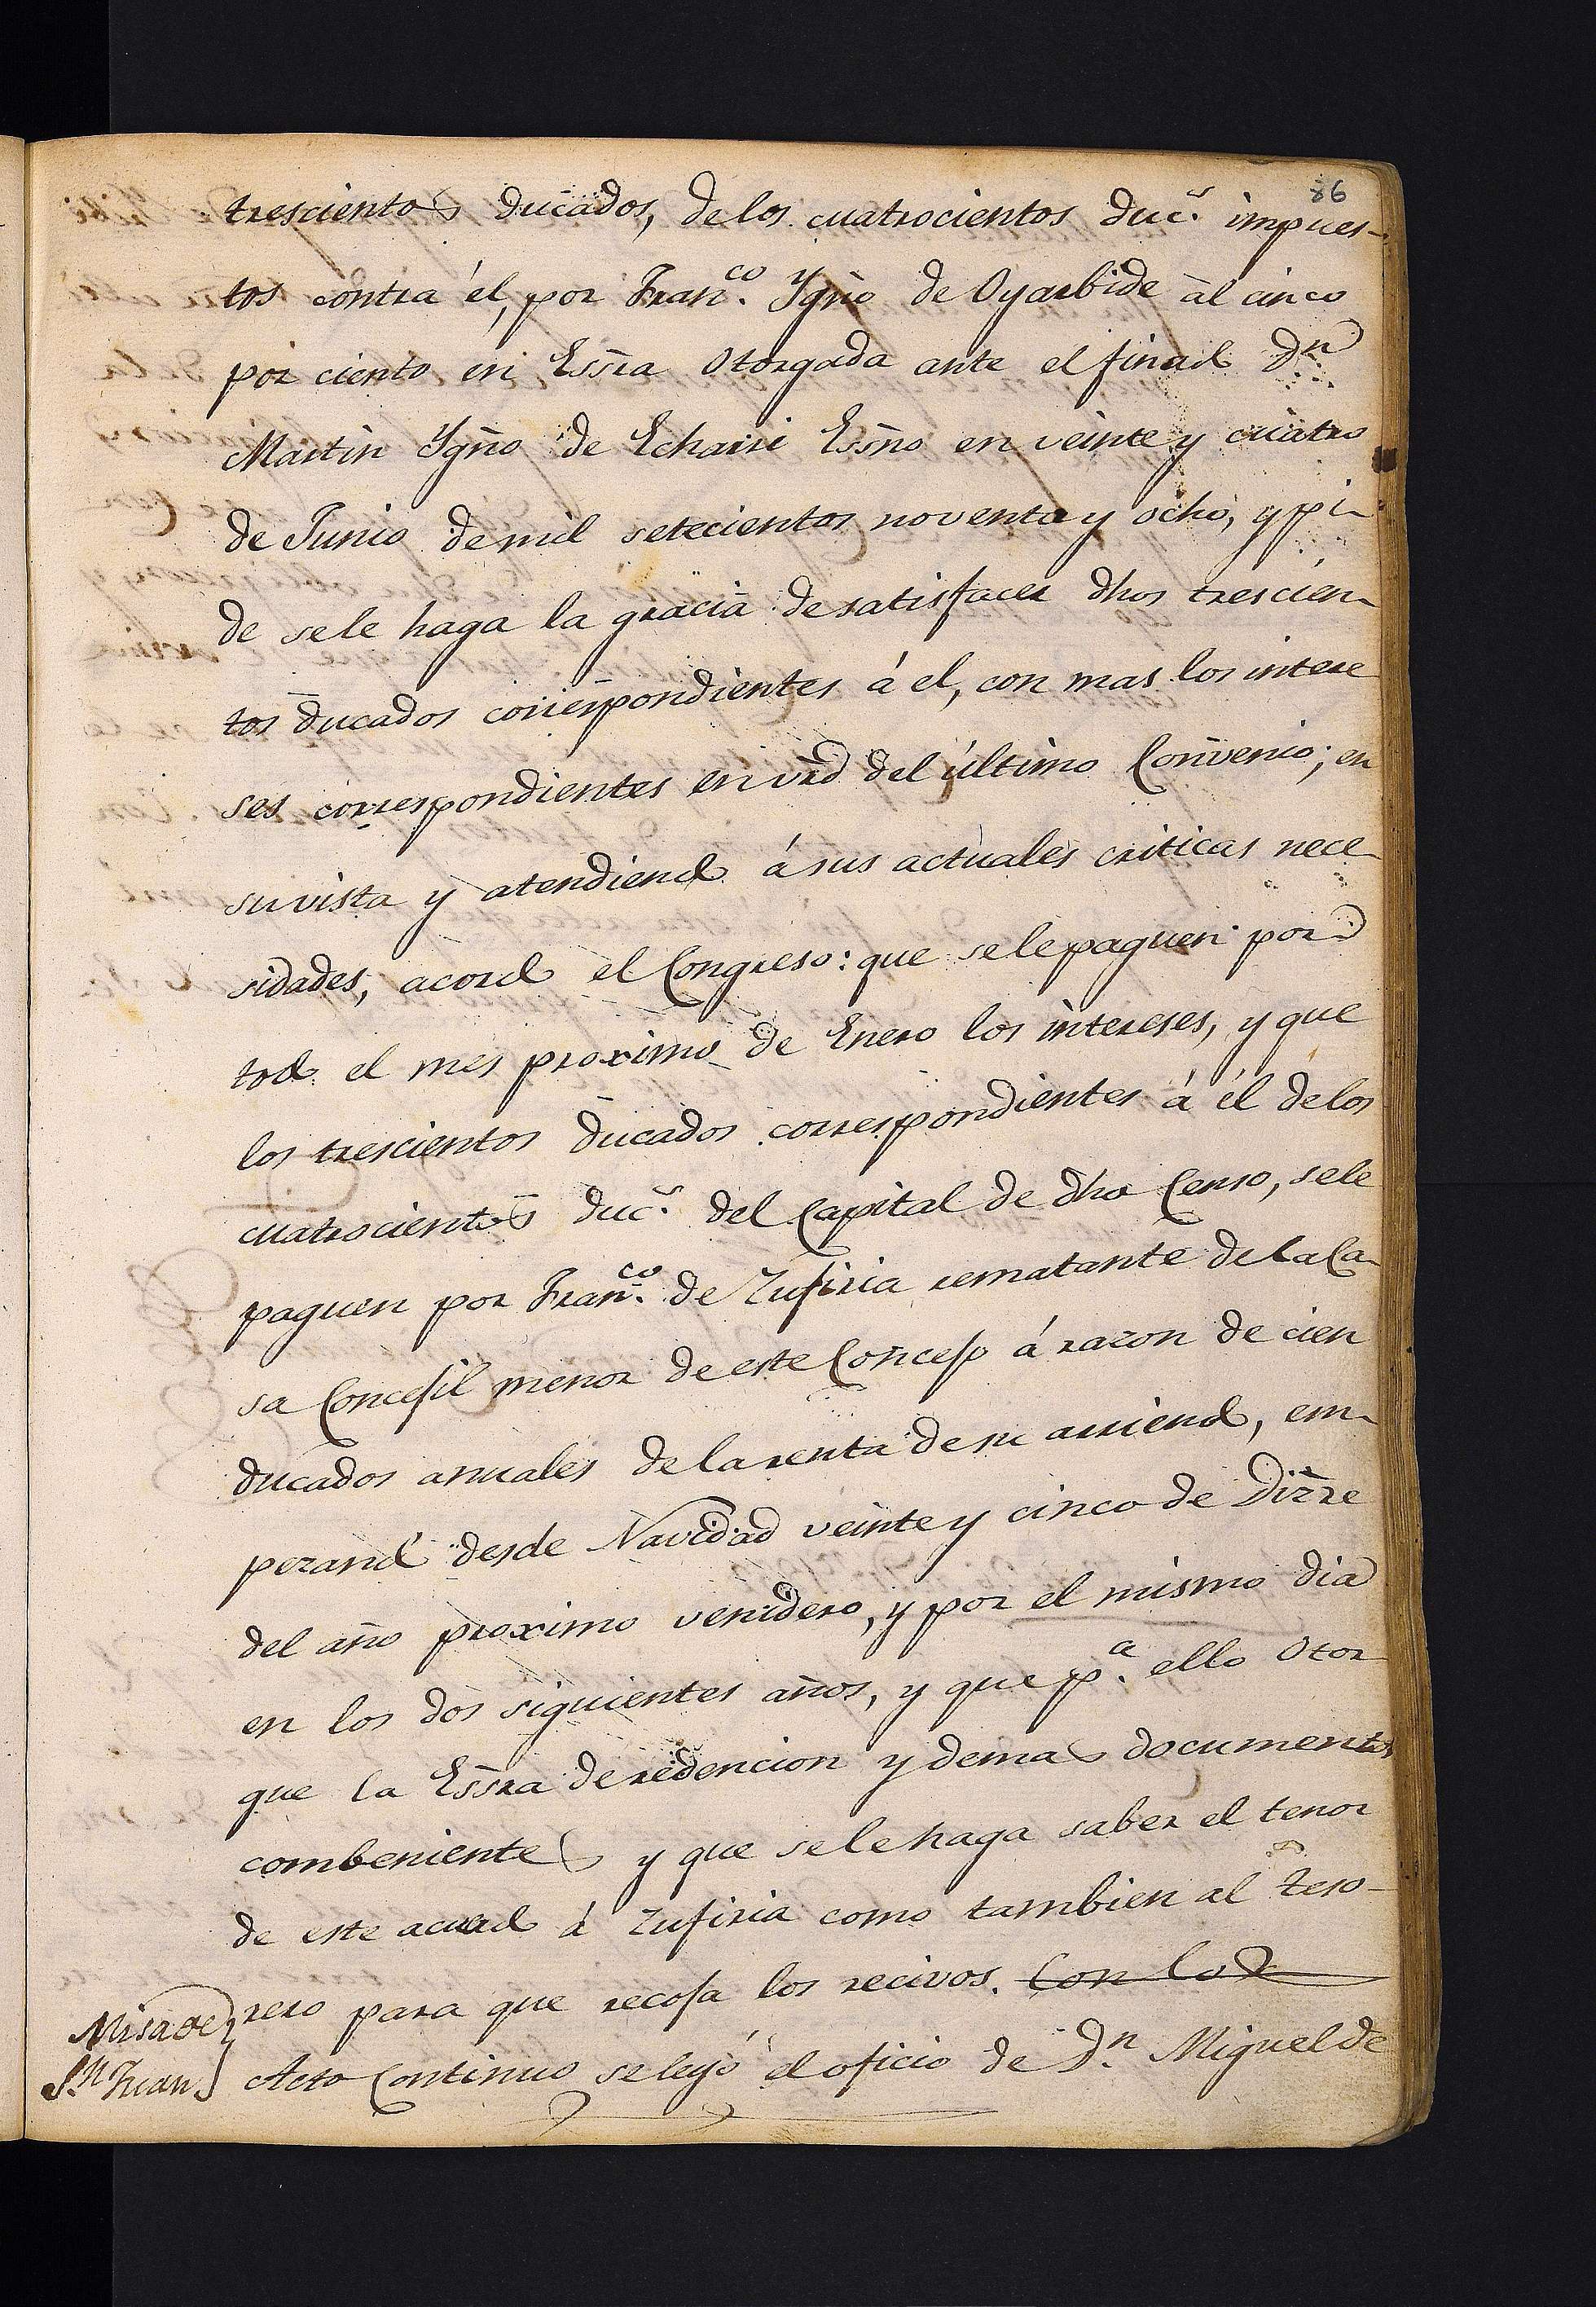 86
trescientos ducados, de los cuatrocientos duc.ˢ impues-
tos contra él, por Fran.co Ygño de Oyarbide al cinco
por ciento en Essra Otorgada ante el finado Dn
Martin Ygño de Echarri Essno en veinte y cuatro
de Junio de mil setecientos noventa y ocho, y pi-
de sele haga la gracia de satisfacer dhos trescien-
tos ducados correspondientes á el, con mas los intere
ses correspondientes en vrd del último Convenio; en
su vista y atendiendo á sus actuales criticas nece-
sidades, acordo el Congreso: que sele paguen por
todo el mes proximo de Enero los intereses, y que
los trescientos ducados correspondientes á él de los
cuatrocientos duc.ˢ del Capital de dho Censo, sele
paguen por Fran.co de Zufiria rematante de la Ca-
sa Concejil menor de este Concejo á razon de cien
ducados anuales de la renta de su arriendo, em-
perando desde Navidad veinte y cinco de Dizre
del año proximo venidero, y por el mismo dia
en los dos siguientes años, y que p.a ello Otor-
gue la Essra de redencion y demas documentos
combenientes y que sele haga saber el tenor
de este acuerdo á Zufiria como tambien al Teso-
rero para que recoja los recivos. Con lo
Misa de
S.n Juan
Acto Continuo se leyó el oficio de D.n Miguel de